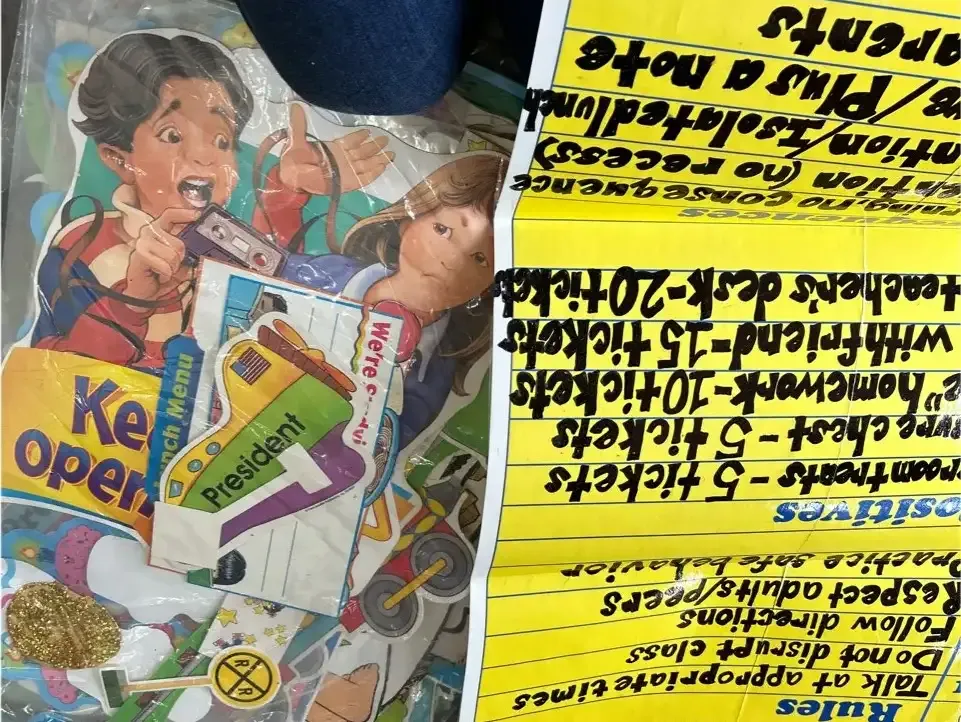 Ke
open
nch Menu
President
We're
R R
Rules
Talk at appropriate times
Do not disrupt class
Follow directions
Respect adults/Peers
Practice safe behavior
ositives
room treats - 5 tickets
ure chest - 5 tickets
e homework" - 10 tickets
with friend - 15 tickets
teacher's desk - 20 tickets
uences
rning, no consequence
ention (no recess)
ntion/Isolated lunch
e/Plus a note
arents